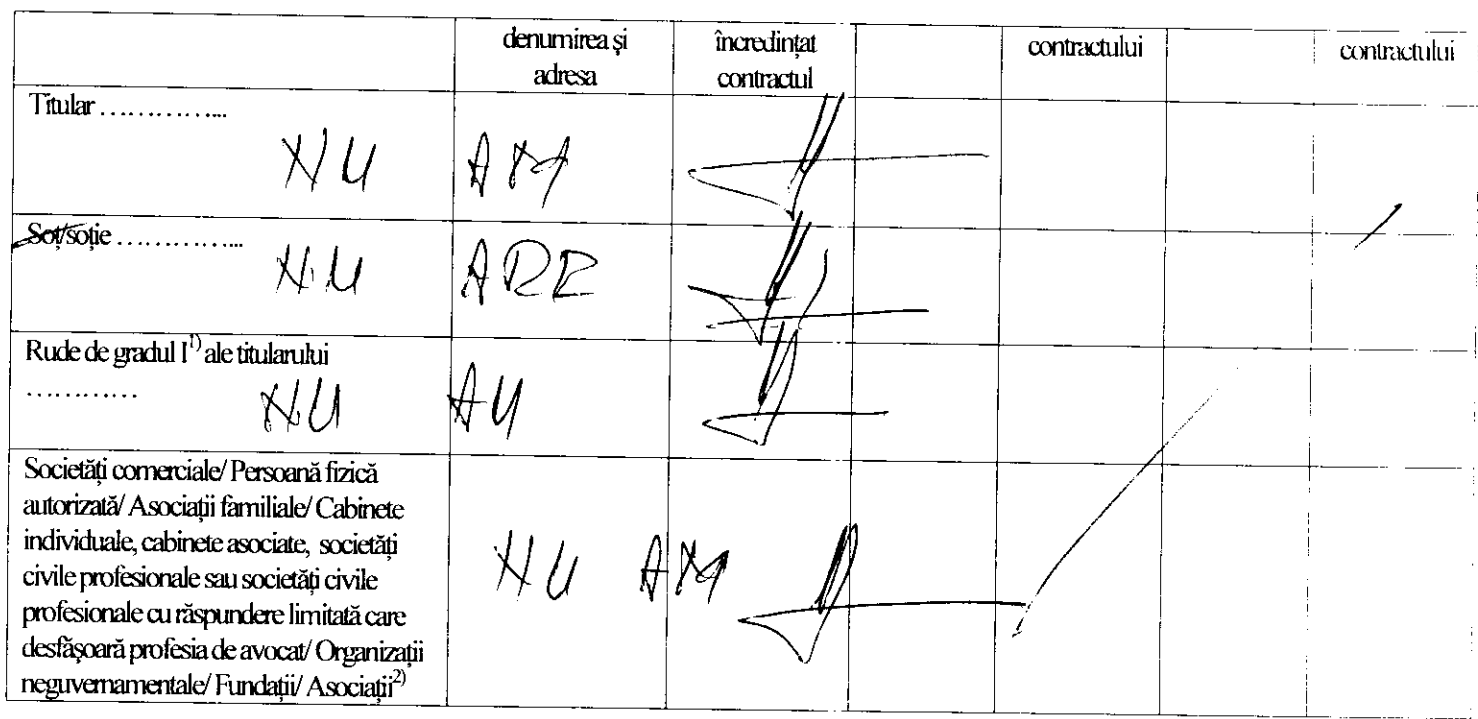 denumirea și
adresa
încredințat
contractul
contractului
contractului
Titular ..............
NU AM
Soț/soție ..............
NU ARE
Rude de gradul I¹⁾ ale titularului
............
NU AU
Societăți comerciale/ Persoană fizică
autorizată/ Asociații familiale/ Cabinete
individuale, cabinete asociate, societăți
civile profesionale sau societăți civile
profesionale cu răspundere limitată care
desfășoară profesia de avocat/ Organizații
neguvernamentale/ Fundații/ Asociații²⁾
NU AM